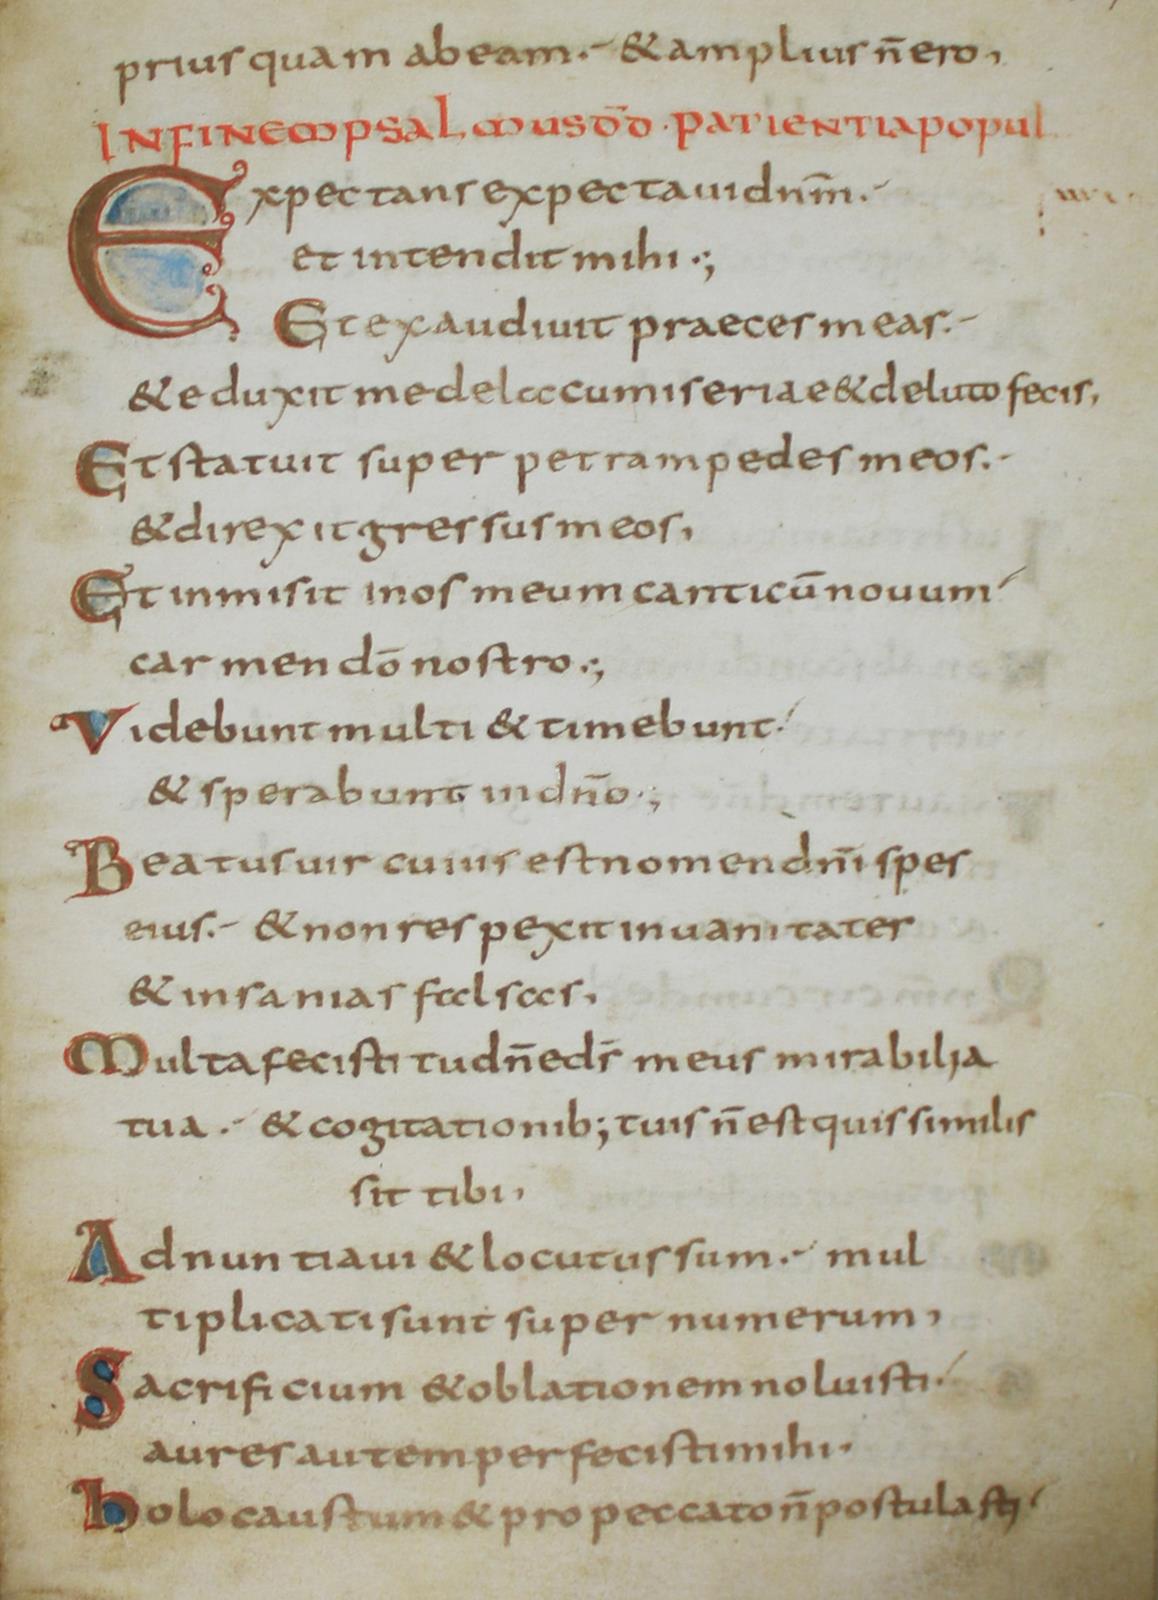 prius quam abeam. & amplius n̄ ero,
IN FINEM PSALMUS D̄D. PATIENTIA POPUL
Expectans expectaui dn̄m.
et intendit mihi.;
Et exaudiuit praeces meas.
& eduxit me de lacu miseriae & de luto fecis,
Et statuit super petram pedes meos.
& direxit gressus meos,
Et inmisit in os meum canticū nouum
carmen dō nostro.;
Videbunt multi & timebunt.
& sperabunt in dn̄o.;
Beatus uir cuius est nomen dn̄i spes
eius. & non respexit in uanitates
& insanias falsas,
Multa fecisti tu dn̄e ds̄ meus mirabilia
tua. & cogitationib; tuis n̄ est quis similis
sit tibi,
Adnuntiaui & locutus sum. mul
tiplicati sunt super numerum,
Sacrificium & oblationem noluisti.
aures autem perfecisti mihi.
holocaustum & pro peccato n̄ postulasti